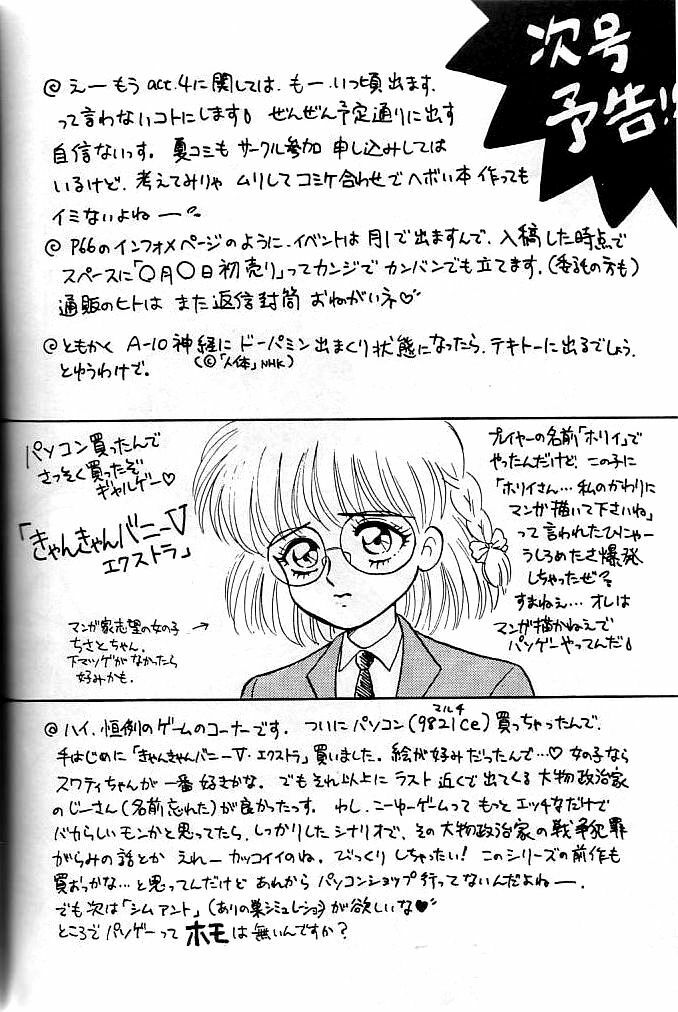 次号
予告!!
@ えー もう act.4に関しては、もー、いつ頃出ます、
って言わないコトにします。ぜんぜん予定通りに出す
自信ないっす。夏コミも サークル参加 申し込みしては
いるけど、考えてみりゃ ムリしてコミケ合わせで ヘボい本 作っても
イミないよねー。
@ P66のインフォメページのように、イベントは 月1で出ますんで、入稿した時点で
スペースに「○月○日初売り」ってカンジで カンバンでも立てます。(委託の方も)
通販のヒトは また返信封筒 おねがいネ♡
@ ともかく A-10神経に ドーパミン出まくり状態になったら、テキトーに出るでしょう。
(©「人体」NHK)
とゆうわけで。
パソコン買ったんで
さっそく買ったぞ
ギャルゲー♡
「きゃんきゃんバニーⅤ
エクストラ」
マンガ家志望の女の子 →
ちさとちゃん。
下マツゲがなかったら
好みかも。
プレイヤーの名前「ホリイ」で
やったんだけど、この子に
「ホリイさん…私のかわりに
マンガ描いて下さいね」
って言われたひにゃー
うしろめたさ爆発
しちゃったぜ
すまねえ… オレは
マンガ描かねえで
パソゲーやってんだ
@ ハイ、恒例のゲームのコーナーです。ついにパソコン(9821Ce)買っちゃったんで、
マルチ
手はじめに「きゃんきゃんバニーⅤ・エクストラ」買いました。絵が好みだったんで…♡ 女の子なら
スワティちゃんが一番好きかな。でもそれ以上に ラスト近くで出てくる 大物政治家
のじーさん(名前忘れた)が良かったっす。わし、こーゆーゲームって もっと エッチなだけで
バカらしいモンかと思ってたら、しっかりしたシナリオで、その大物政治家の戦争犯罪
がらみの話とか えれー カッコイイのね。びっくり しちゃったい! このシリーズの前作も
買おっかな…と思ってんだけど あれから パソコンショップ行ってないんだよねー。
でも次は「シムアント」(ありの巣シミュレーション)が欲しいな♥
ところでパソゲーって ホモは無いんですか?